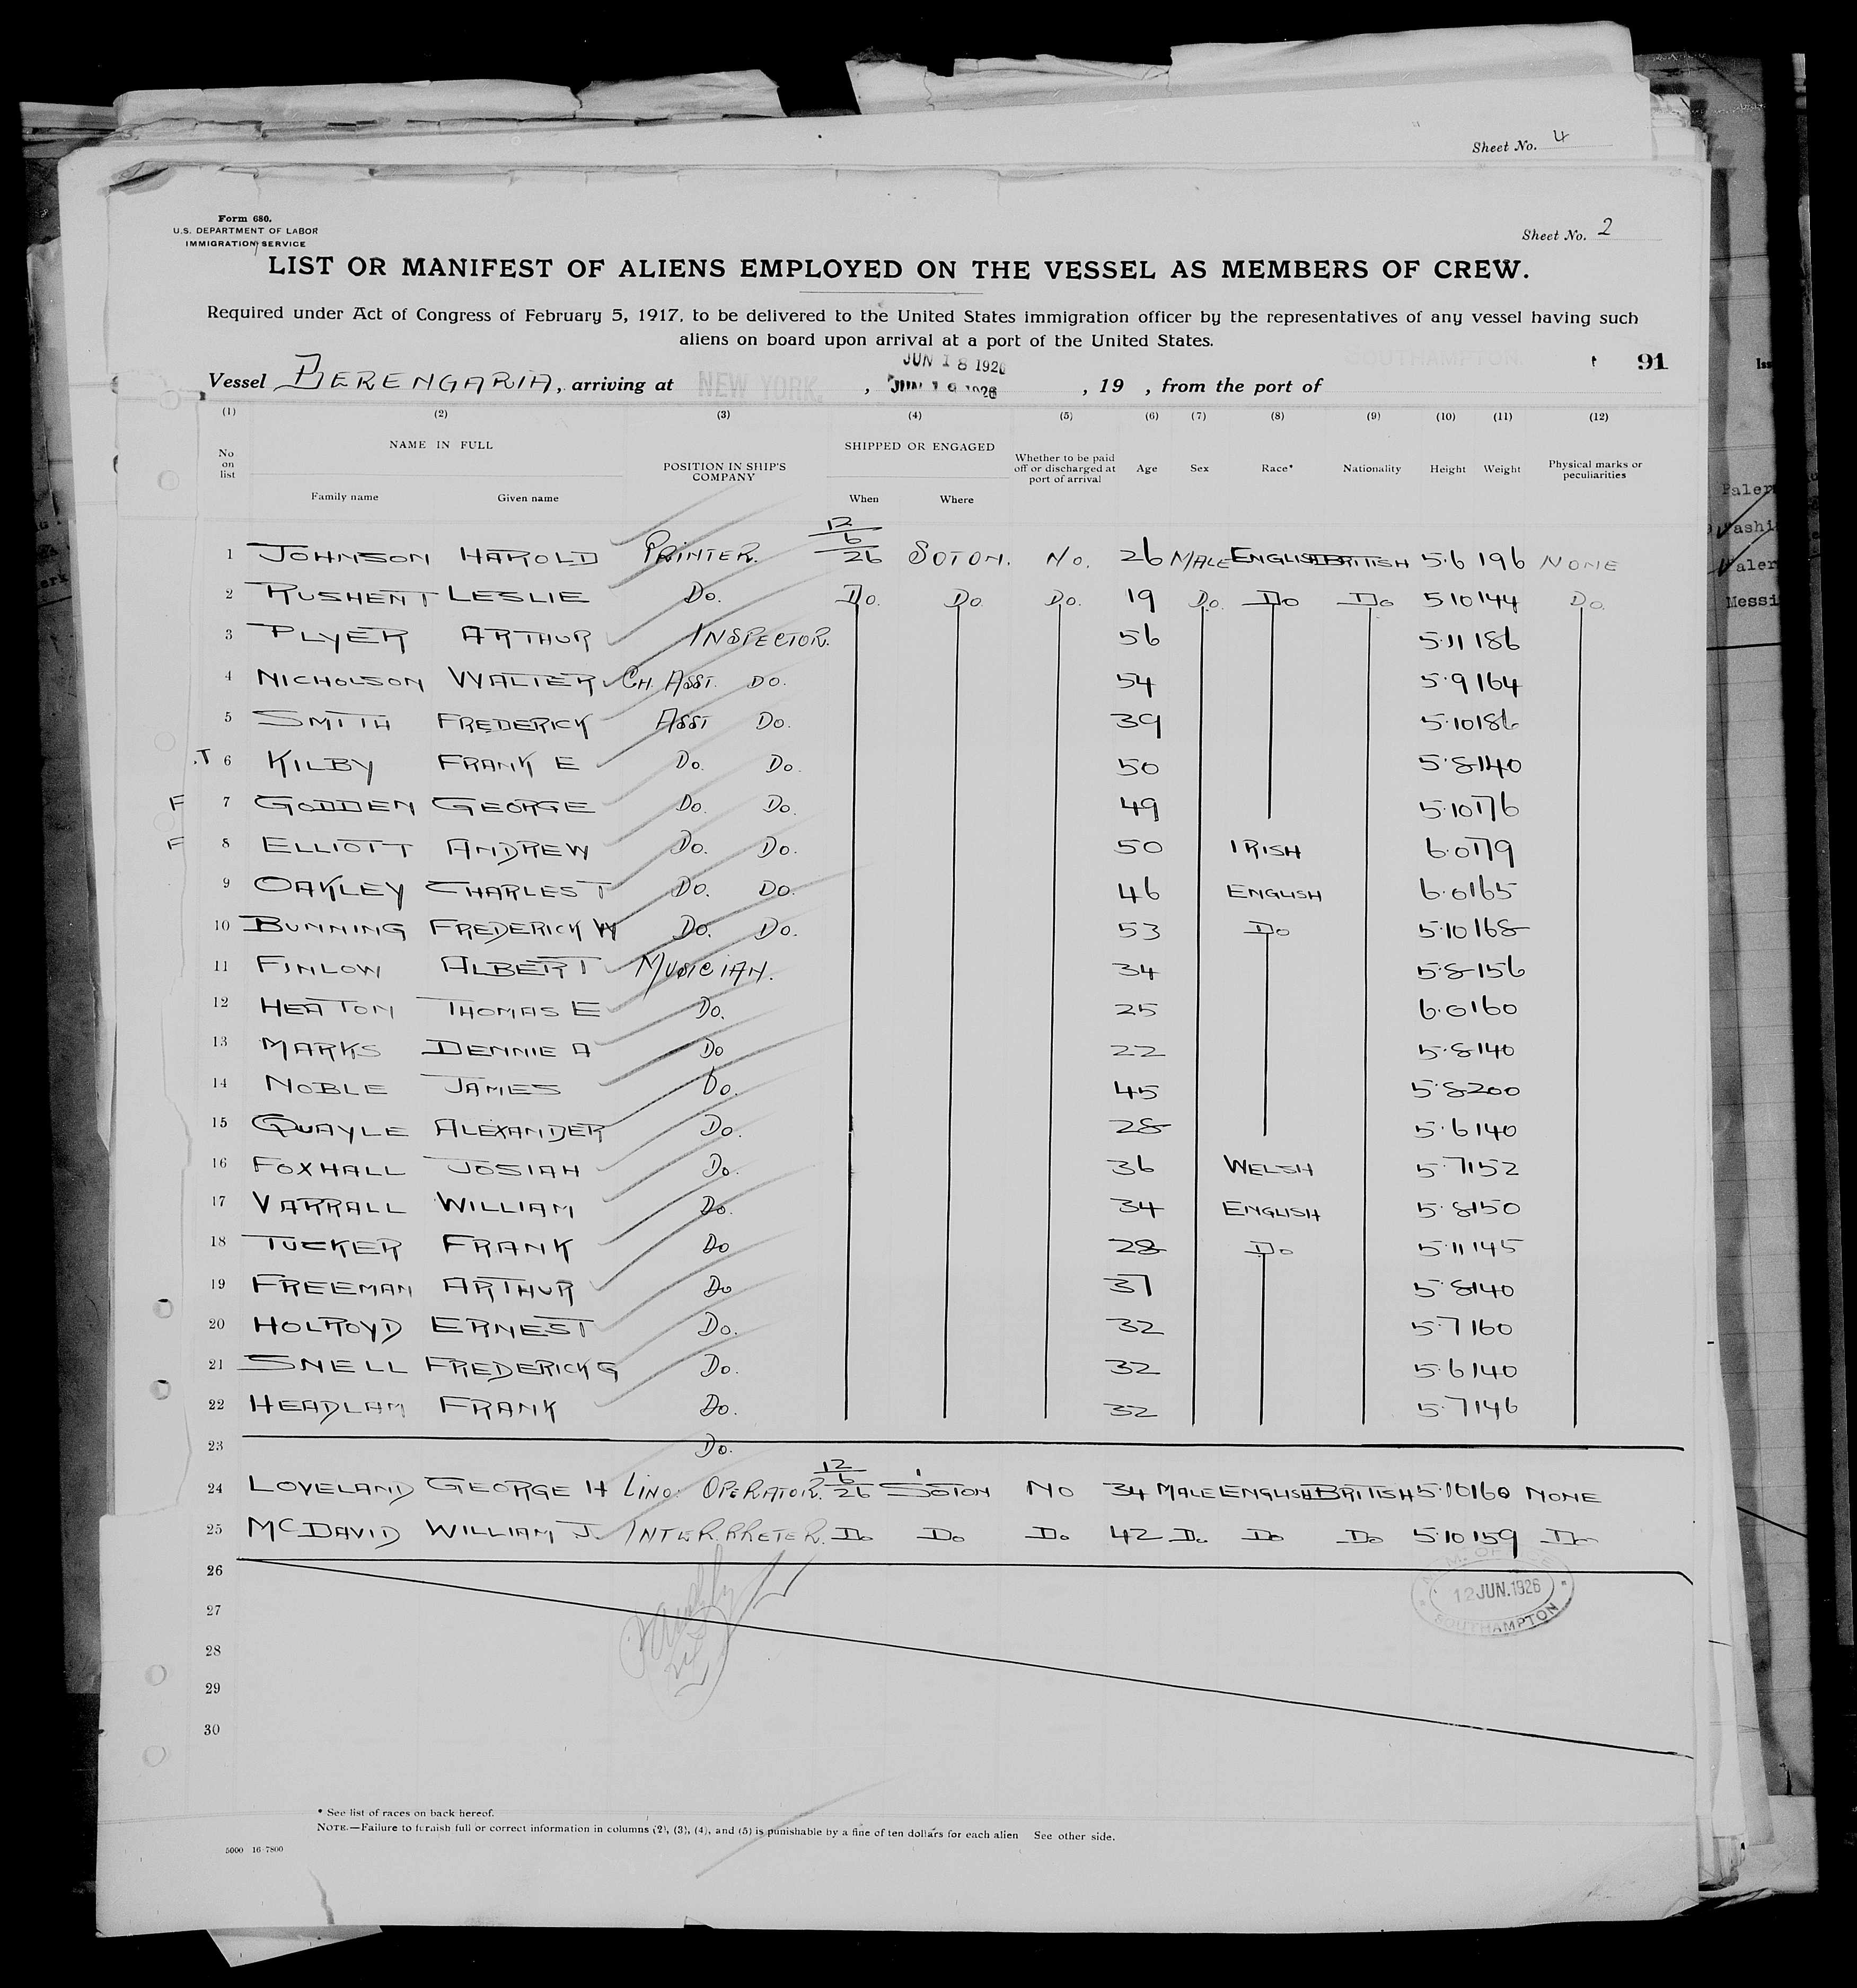 Sheet No. 4
Form 680.
U.S. DEPARTMENT OF LABOR
IMMIGRATION SERVICE
Sheet No. 2
LIST OR MANIFEST OF ALIENS EMPLOYED ON THE VESSEL AS MEMBERS OF CREW.
Required under Act of Congress of February 5, 1917, to be delivered to the United States immigration officer by the representatives of any vessel having such
aliens on board upon arrival at a port of the United States.
JUN 18 1926 SOUTHAMPTON. 91
Vessel BERENGARIA, arriving at NEW YORK. , JUN 19 1926 , 19 , from the port of
(1) (2) (3) (4) (5) (6) (7) (8) (9) (10) (11) (12)
No on list NAME IN FULL Family name Given name POSITION IN SHIP'S COMPANY SHIPPED OR ENGAGED When Where Whether to be paid off or discharged at port of arrival Age Sex Race* Nationality Height Weight Physical marks or peculiarities
1 JOHNSON HAROLD PRINTER. 12/6/26 SOTON. No. 26 MALE ENGLISH BRITISH 5.6 196 NONE
2 RUSHENT LESLIE Do. Do. Do. Do. 19 Do. Do Do 5 10 144 Do.
3 PLYER ARTHUR INSPECTOR. 56 5.11 186
4 NICHOLSON WALTER CH. ASST. DO. 54 5.9 164
5 SMITH FREDERICK ASST DO. 39 5.10 186
T 6 KILBY FRANK E Do. Do. 50 5.8 140
F 7 GODDEN GEORGE Do. Do. 49 5.10 176
F 8 ELLIOTT ANDREW Do. Do. 50 IRISH 6.0 179
9 OAKLEY CHARLES T Do. Do. 46 ENGLISH 6.0 165
10 BUNNING FREDERICK W Do. Do. 53 Do 5.10 168
11 FINLOW ALBERT MUSICIAN. 34 5.8 156
12 HEATON THOMAS E Do. 25 6.0 160
13 MARKS DENNIE A Do 22 5.8 140
14 NOBLE JAMES Do. 45 5.8 200
15 QUAYLE ALEXANDER Do. 28 5.6 140
16 FOXHALL JOSIAH Do. 36 WELSH 5.7 152
17 VARRALL WILLIAM Do. 34 ENGLISH 5.8 150
18 TUCKER FRANK Do 28 Do 5.11 145
19 FREEMAN ARTHUR Do 37 5.8 140
20 HOLROYD ERNEST Do. 32 5.7 160
21 SNELL FREDERICK G Do. 32 5.6 140
22 HEADLAM FRANK Do. 32 5.7 146
23 Do.
24 LOVELAND GEORGE H LINO. OPERATOR. 12/6/26 SOTON NO 34 MALE ENGLISH BRITISH 5.10 160 NONE
25 MCDAVID WILLIAM J. INTERPRETER. Do Do Do 42 Do Do Do 5.10 159 Do
26
27
28
29
30
M. OFFICE
12 JUN. 1926
SOUTHAMPTON
* See list of races on back hereof.
NOTE.—Failure to furnish full or correct information in columns (2), (3), (4), and (5) is punishable by a fine of ten dollars for each alien See other side.
5000 16-7800